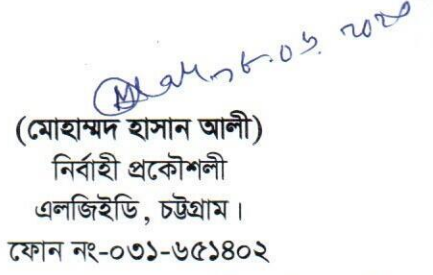 (মোহাম্মদ হাসান আলী)
নির্বাহী প্রকৌশলী
এলজিইডি, চট্টগ্রাম।
ফোন নং-০৩১-৬৫১৪০২